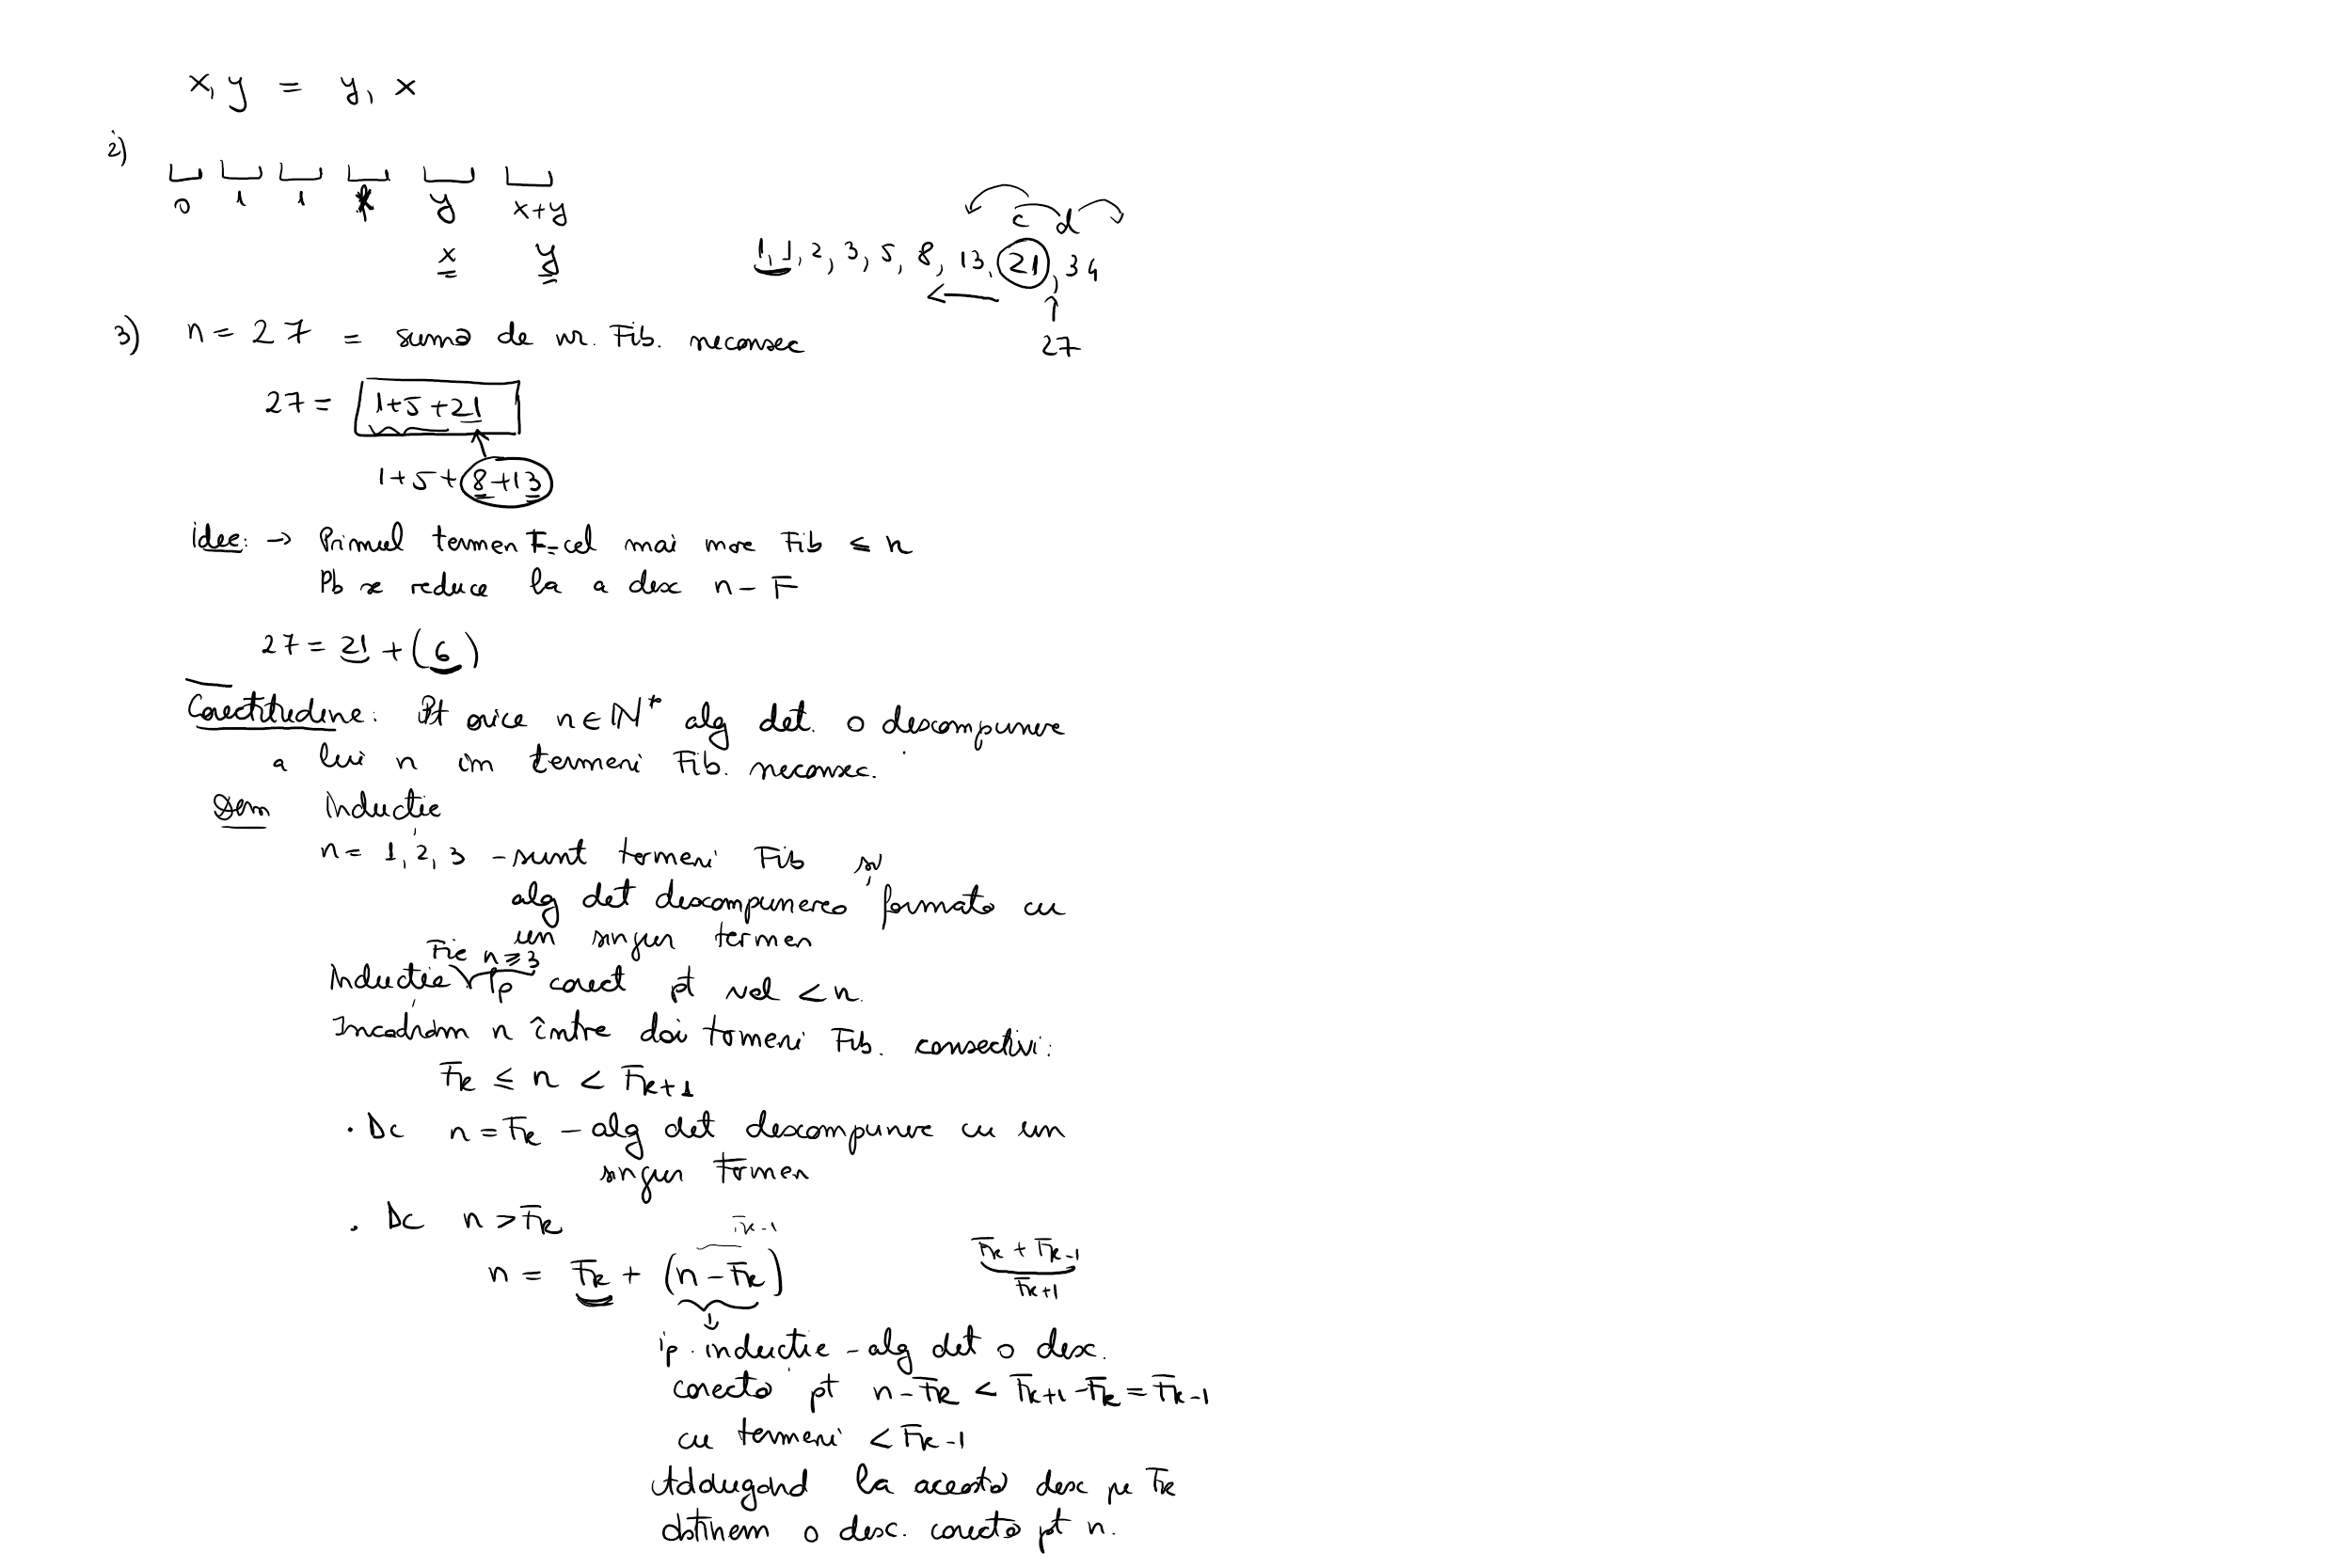 x, y = y, x
2)
0 1 1 x y x+y
x y
c d
1, 1, 2, 3, 5, 8, 13, 21, 34
27
3) n = 27 = suma de nr. Fib. neconsec
27 = 1+5+21
1+5+8+13
idee: → Primul termen F = cel mai mare Fib ≤ n
Pb se reduce la a desc n - F
27 = 21 + (6)
Corectitudine: Pt orice n ∈ ℕ* alg det. o descompunere
a lui n în termeni Fib. neconsec.
Dem Inducție
n = 1, 2, 3 - sunt termeni Fib și
alg det descompunerea formată cu
un singur termen
Fie n ≥ 3
Inducție Ip corect pt val < n.
Incadrăm n între doi termeni Fib. consectivi:
Fk ≤ n < Fk+1
· Dc n = Fk - alg det descompunere cu un
singur termen
· Dc n > Fk
Fk-1
n = Fk + (n - Fk)
Fk + Fk-1
Fk+1
ip. inducție - alg det o desc.
corectă pt n - Fk < Fk+1 - Fk = Fk-1
cu termeni < Fk-1
Adăugând la această desc pe Fk
obținem o desc. corectă pt n.